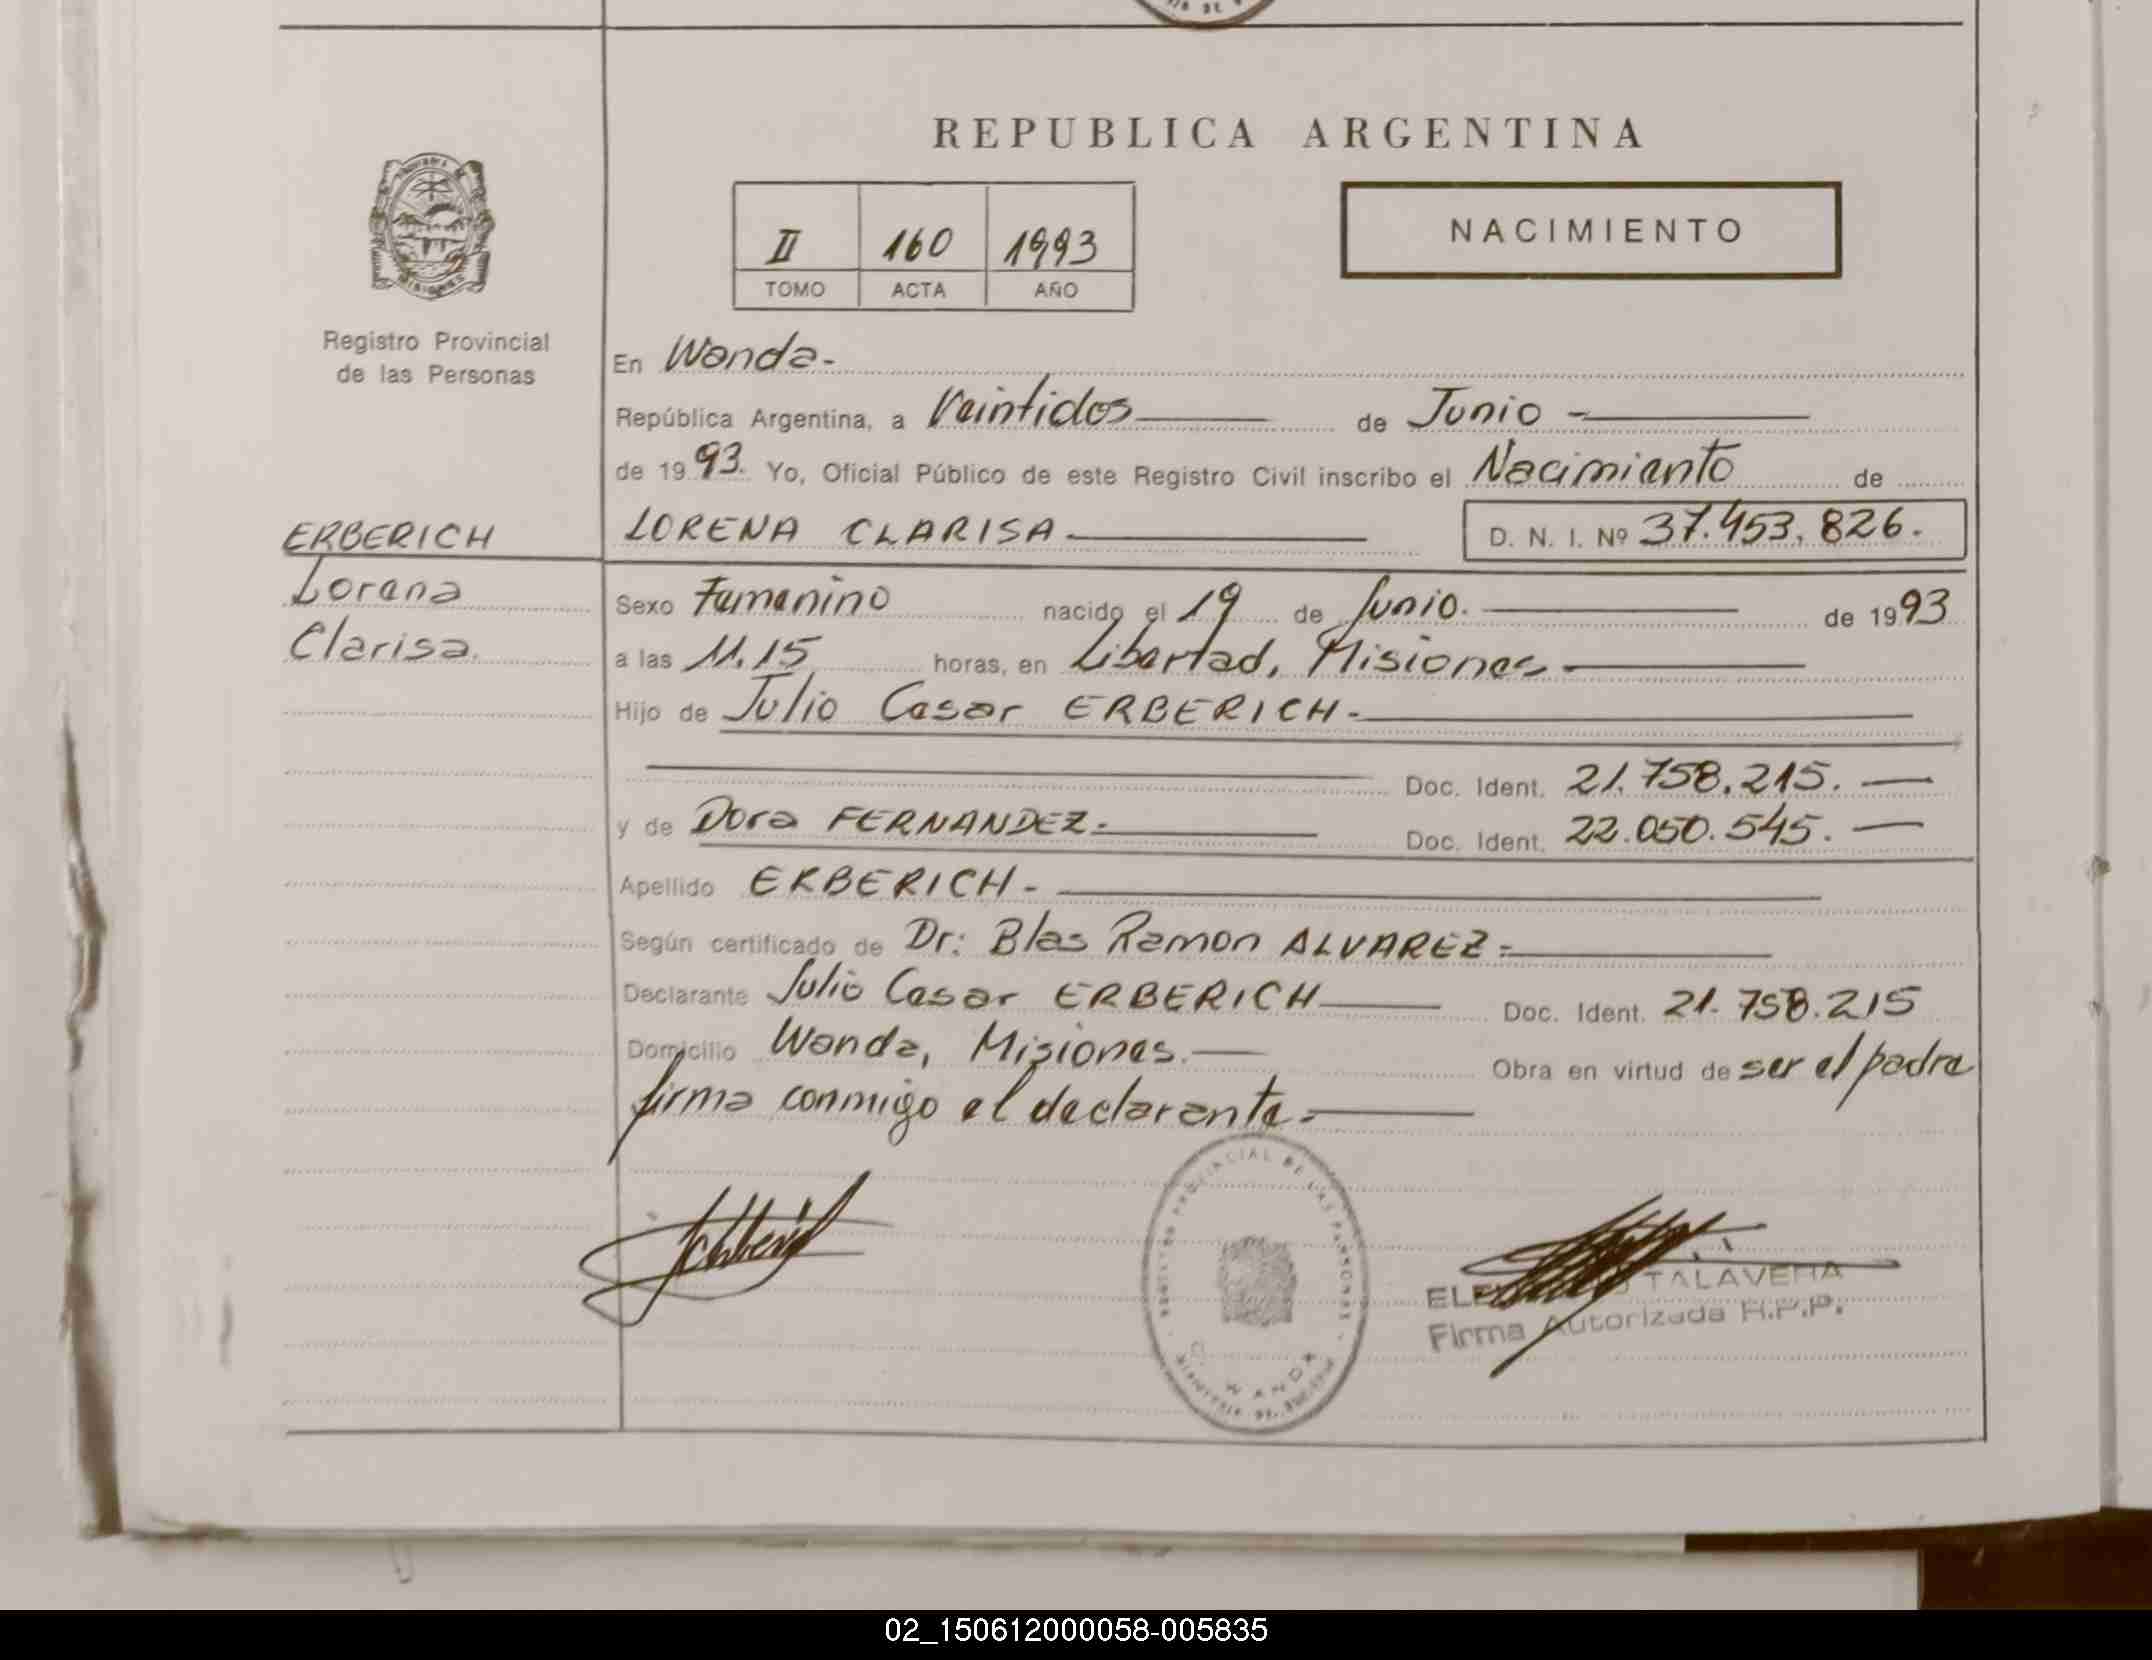 REPUBLICA ARGENTINA
II 160 1993
TOMO ACTA AÑO
NACIMIENTO
Registro Provincial
de las Personas
En Wanda-
República Argentina, a Veintidos de Junio -
de 19 93. Yo, Oficial Público de este Registro Civil inscribo el Nacimiento de
ERBERICH
Lorena
Clarisa.
LORENA CLARISA D. N. I. Nº 37.453.826.
Sexo Femenino nacido el 19 de Junio. de 19 93
a las 11.15 horas, en Libertad, Misiones
Hijo de Julio Cesar ERBERICH.
Doc. Ident. 21.758.215.
y de Dora FERNANDEZ. Doc. Ident. 22.050.545.
Apellido ERBERICH-
Según certificado de Dr: Blas Ramon ALVAREZ.
Declarante Julio Cesar ERBERICH Doc. Ident. 21.758.215
Domicilio Wanda, Misiones. Obra en virtud de ser el padre
firma conmigo el declarante.
REGISTRO PROVINCIAL DE LAS PERSONAS
WANDA
TALAVERA
Firma Autorizada R.P.P.
02_150612000058-005835